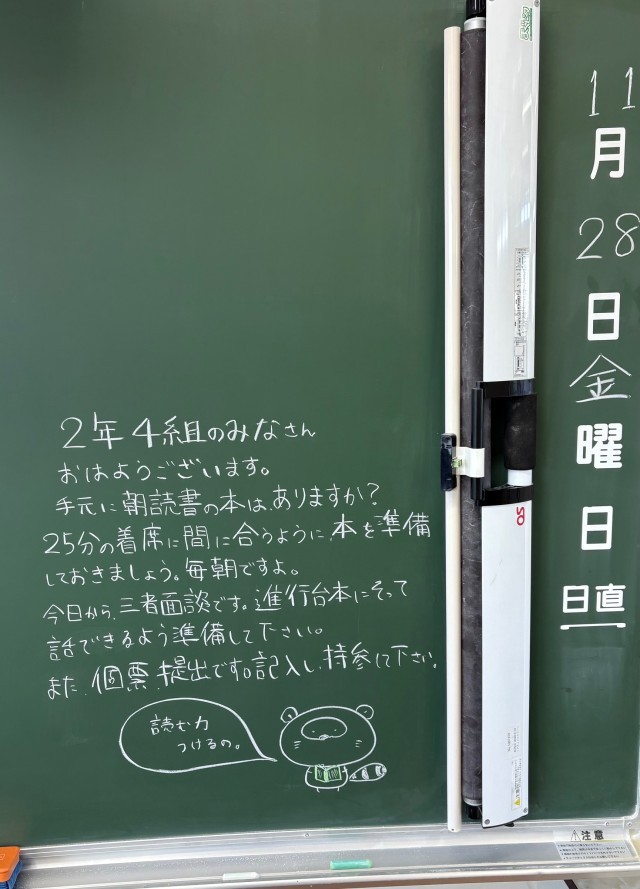 2年4組のみなさん
おはようございます。
手元に朝読書の本は、ありますか?
25分の着席に間に合うように、本を準備
しておきましょう。毎朝ですよ。
今日から、三者面談です。進行台本にそって
話できるよう準備して下さい。
また、個票、提出です。記入し、持参して下さい。
読む力
つけるの。
11
月
28
日
金
曜
日
日直
注意